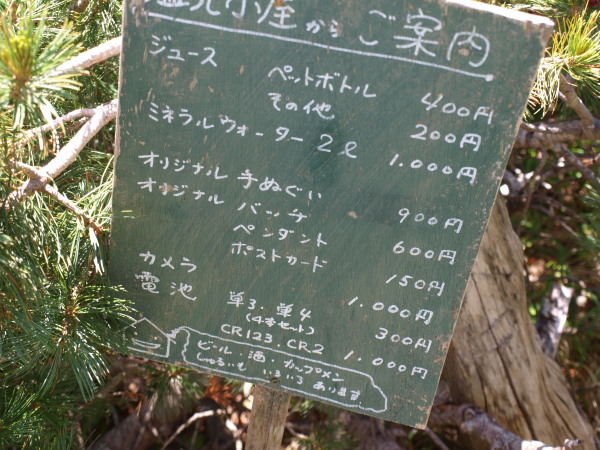 からご案内
ジュース ペットボトル 400円
その他 200円
ミネラルウォーター 2ℓ 1.000円
オリジナル 手ぬぐい 900円
オリジナル バッチ
ペンダント 600円
ポストカード 150円
カメラ 1.000円
電池 単3.単4 300円
(4本セット)
CR123.CR2 1.000円
ビール・酒・カップメン
しゅるいも いろいろ あります